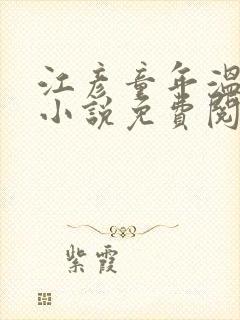 江彦童年温
小说免費閱
紫霞